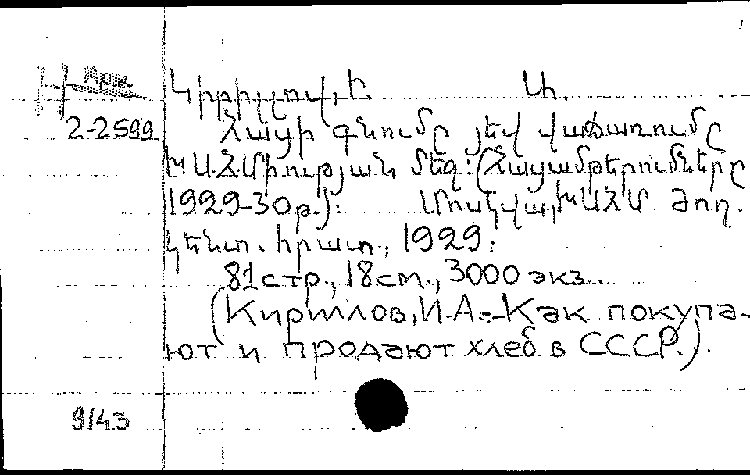 Арм.
2-2599
Կիրիլլով, Ի. Ա.
Հացի գնումը յեվ վաճառումը
ԽՍՀՄիության մեջ: (Հացամթերումները
1929-30թ.): Մոսկվա, ԽՍՀՄ ժող.
կենտ. հրատ., 1929:
81 стр., 18 см., 3000 экз.
(Кириллов, И.А. - Как покупа-
ют и продают хлеб в СССР.).
9143